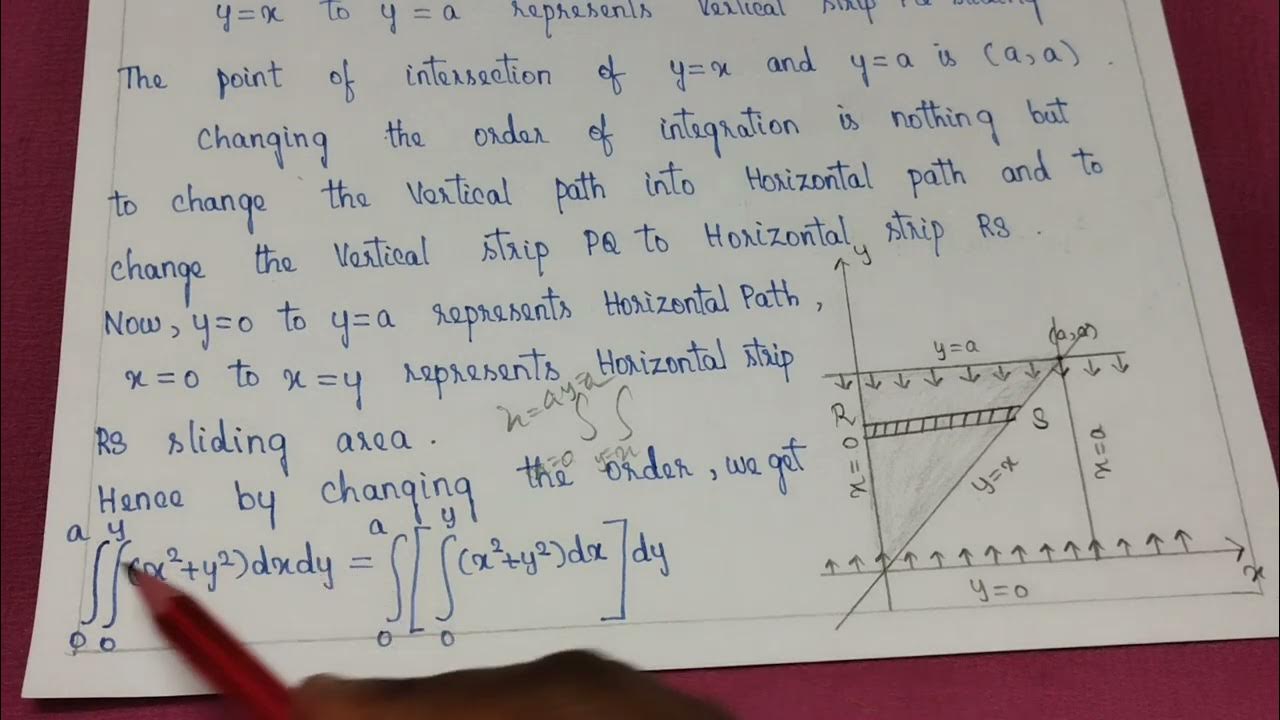 y=x to y = a represents Vertical strip PQ
The point of intersection of y=x and y=a is (a,a).
Changing the order of integration is nothing but
to change the Vertical path into Horizontal path and to
change the Vertical strip PQ to Horizontal strip RS.
Now, y=0 to y=a represents Horizontal Path,
x=0 to x=y represents Horizontal strip
RS sliding area.
Hence by changing the order, we get
∫₀ᵃ∫₀ʸ(x²+y²)dxdy = ∫₀ᵃ[∫₀ʸ(x²+y²)dx]dy
∫ ∫
y
y=a
(a,a)
R
S
x=0
y=x
x=a
x
y=0